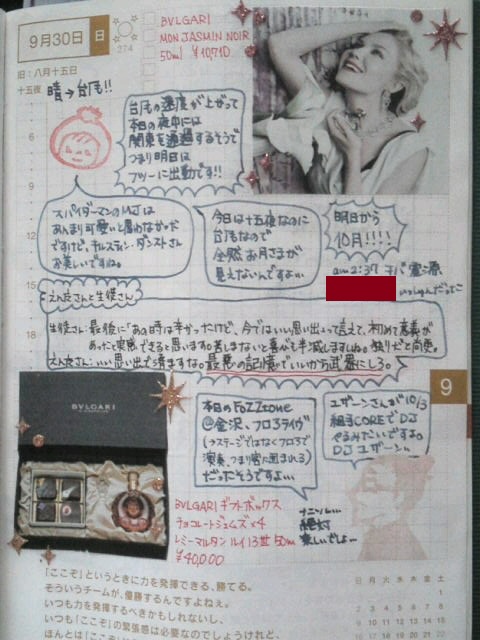 9月30日 日
274
旧:八月十五日
十五夜
晴→台風!!
BVLGARI
MON JASMIN NOIR
50ml ¥10,710
台風の速度が上がって
本日の夜中には
関東を通過するそうで
つまり明日は
フツーに出勤です!!
6
9
12
15
18
スパイダーマンのMJは
あんまり可愛いと思わなかった
ですけど、キルスティン・ダンストさん
お美しいですね。
今日は十五夜なのに
台風なので
全然お月さまが
見えないんですよぃ
明日から
10月!!!!
am2:37
生徒さん:最後に「あの時は辛かったけど、今ではいい思い出」って言えて、初めて意義が
あったと実感できると思います。苦しまないと喜びも半減しますしね。独りだと尚更。
いい思い出で済ますな。最悪の記憶でいいから武器にしろ。
9
BVLGARI
本日のFoZZtone
@金沢、フロアライヴ
(ステージではなくフロアで
演奏、つまり客に囲まれる)
だったそうですよぃ…
ユザーンさんが10/3
COREでDJ
やるみたいですよ。
DJユザーン。
BVLGARI ギフトボックス
チョコレートジェムズ×4
レミーマルタン ルイ13世 50ml
¥40,000
絶対
楽しいでしょ…
「ここぞ」というときに力を発揮できる、勝てる。
そういうチームが、優勝するんですよねぇ。
いつも力を発揮するべきかもしれないし、
いつも「ここぞ」の緊張感は必要なのでしょうけれど、
日 月 火 水 木 金 土